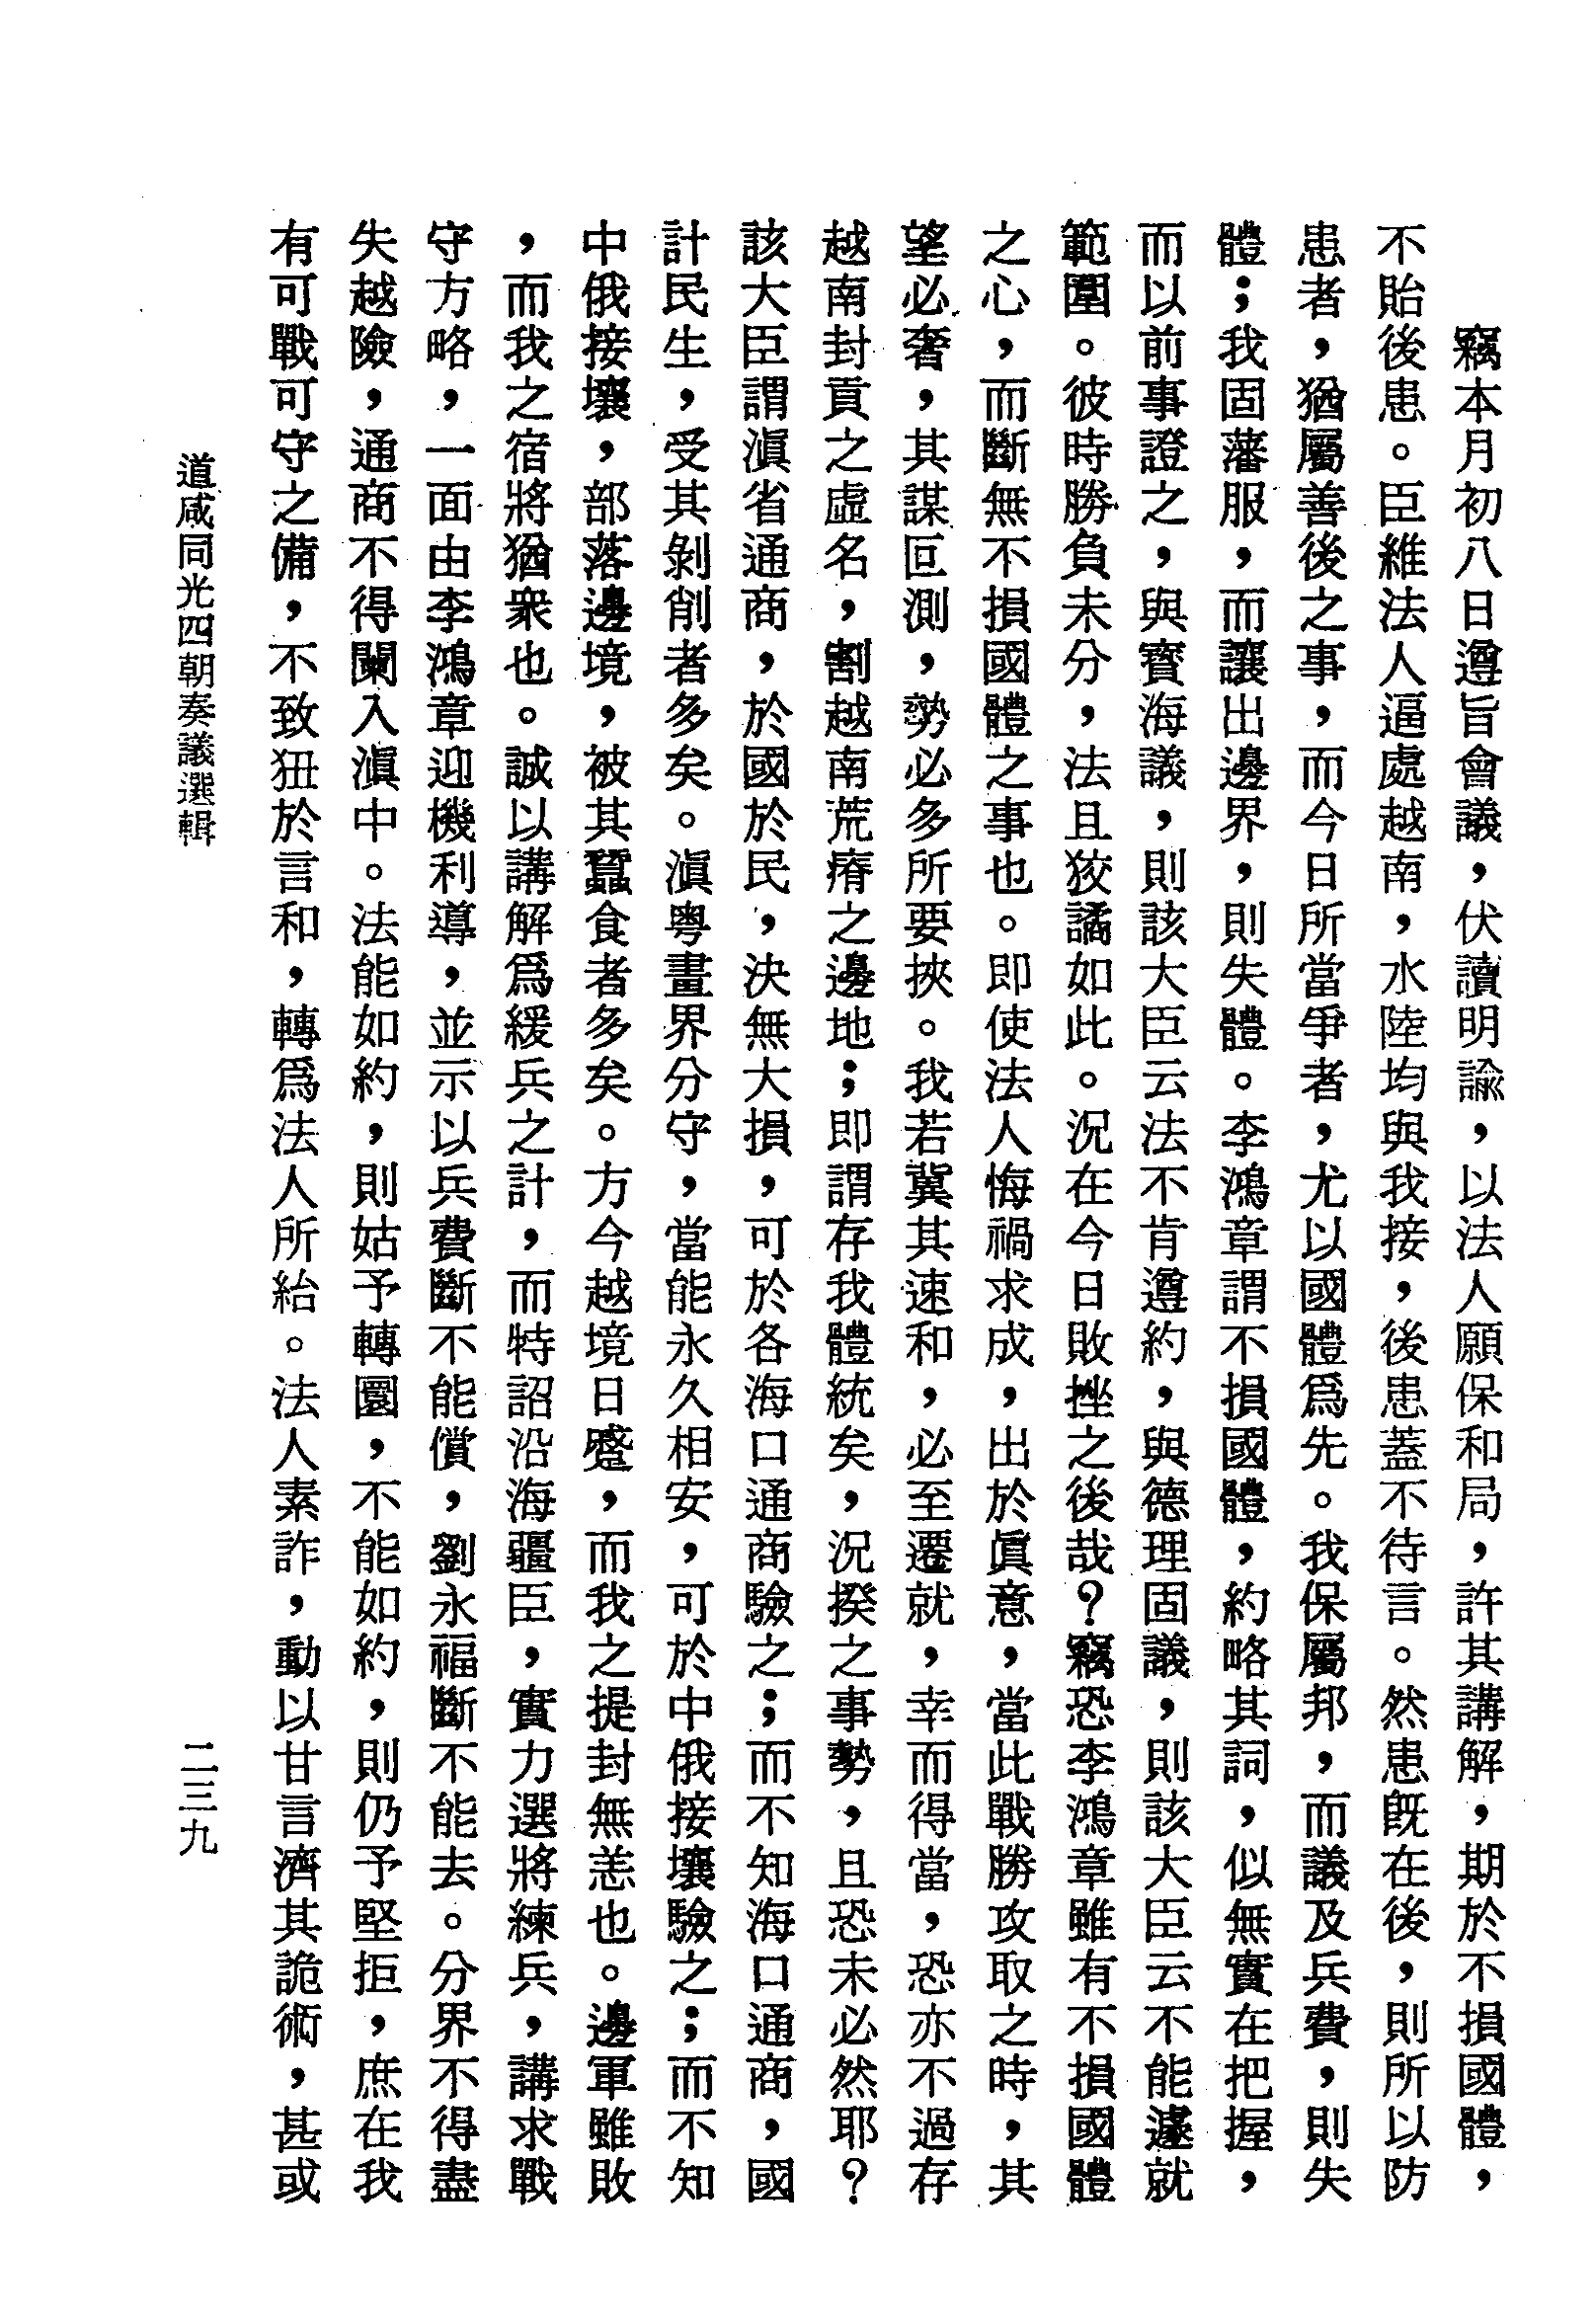 竊本月初八日遵旨會議，伏讀明諭，以法人願保和局，許其講解，期於不損國體，
不貽後患。臣維法人逼處越南，水陸均與我接，後患蓋不待言。然患旣在後，則所以防
患者，猶屬善後之事，而今日所當爭者，尤以國體爲先。我保屬邦，而議及兵費，則失
體；我固藩服，而讓出邊界，則失體。李鴻章謂不損國體，約略其詞，似無實在把握，
而以前事證之，與寶海議，則該大臣云法不肯遵約，與德理固議，則該大臣云不能遽就
範圍。彼時勝負未分，法且狡譎如此。況在今日敗挫之後哉？竊恐李鴻章雖有不損國體
之心，而斷無不損國體之事也。即使法人悔禍求成，出於眞意，當此戰勝攻取之時，其
望必奢，其謀叵測，勢必多所要挾。我若冀其速和，必至遷就，幸而得當，恐亦不過存
越南封貢之虛名，割越南荒瘠之邊地；即謂存我體統矣，況揆之事勢，且恐未必然耶？
該大臣謂滇省通商，於國於民，決無大損，可於各海口通商驗之；而不知海口通商，國
計民生，受其剝削者多矣。滇粤畫界分守，當能永久相安，可於中俄接壤驗之；而不知
中俄接壤，部落邊境，被其蠶食者多矣。方今越境日蹙，而我之提封無恙也。邊軍雖敗
，而我之宿將猶衆也。誠以講解爲緩兵之計，而特詔沿海疆臣，實力選將練兵，講求戰
守方略，一面由李鴻章迎機利導，並示以兵費斷不能償，劉永福斷不能去。分界不得盡
失越險，通商不得闌入滇中。法能如約，則姑予轉圜，不能如約，則仍予堅拒，庶在我
有可戰可守之備，不致狃於言和，轉爲法人所紿。法人素詐，動以甘言濟其詭術，甚或
道咸同光四朝奏議選輯
二三九